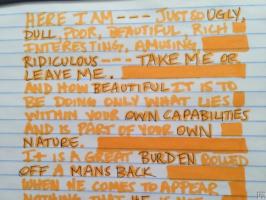 HERE I AM --- JUST SO UGLY,
DULL, POOR, BEAUTIFUL, RICH
INTERESTING, AMUSING,
RIDICULOUS --- TAKE ME OR
LEAVE ME.
AND HOW BEAUTIFUL IT IS TO
BE DOING ONLY WHAT LIES
WITHIN YOUR OWN CAPABILITIES
AND IS PART OF YOUR OWN
NATURE.
IT IS A GREAT BURDEN ROLLED
OFF A MANS BACK
WHEN HE COMES TO APPEAR
NOTHING THAT HE IS NOT